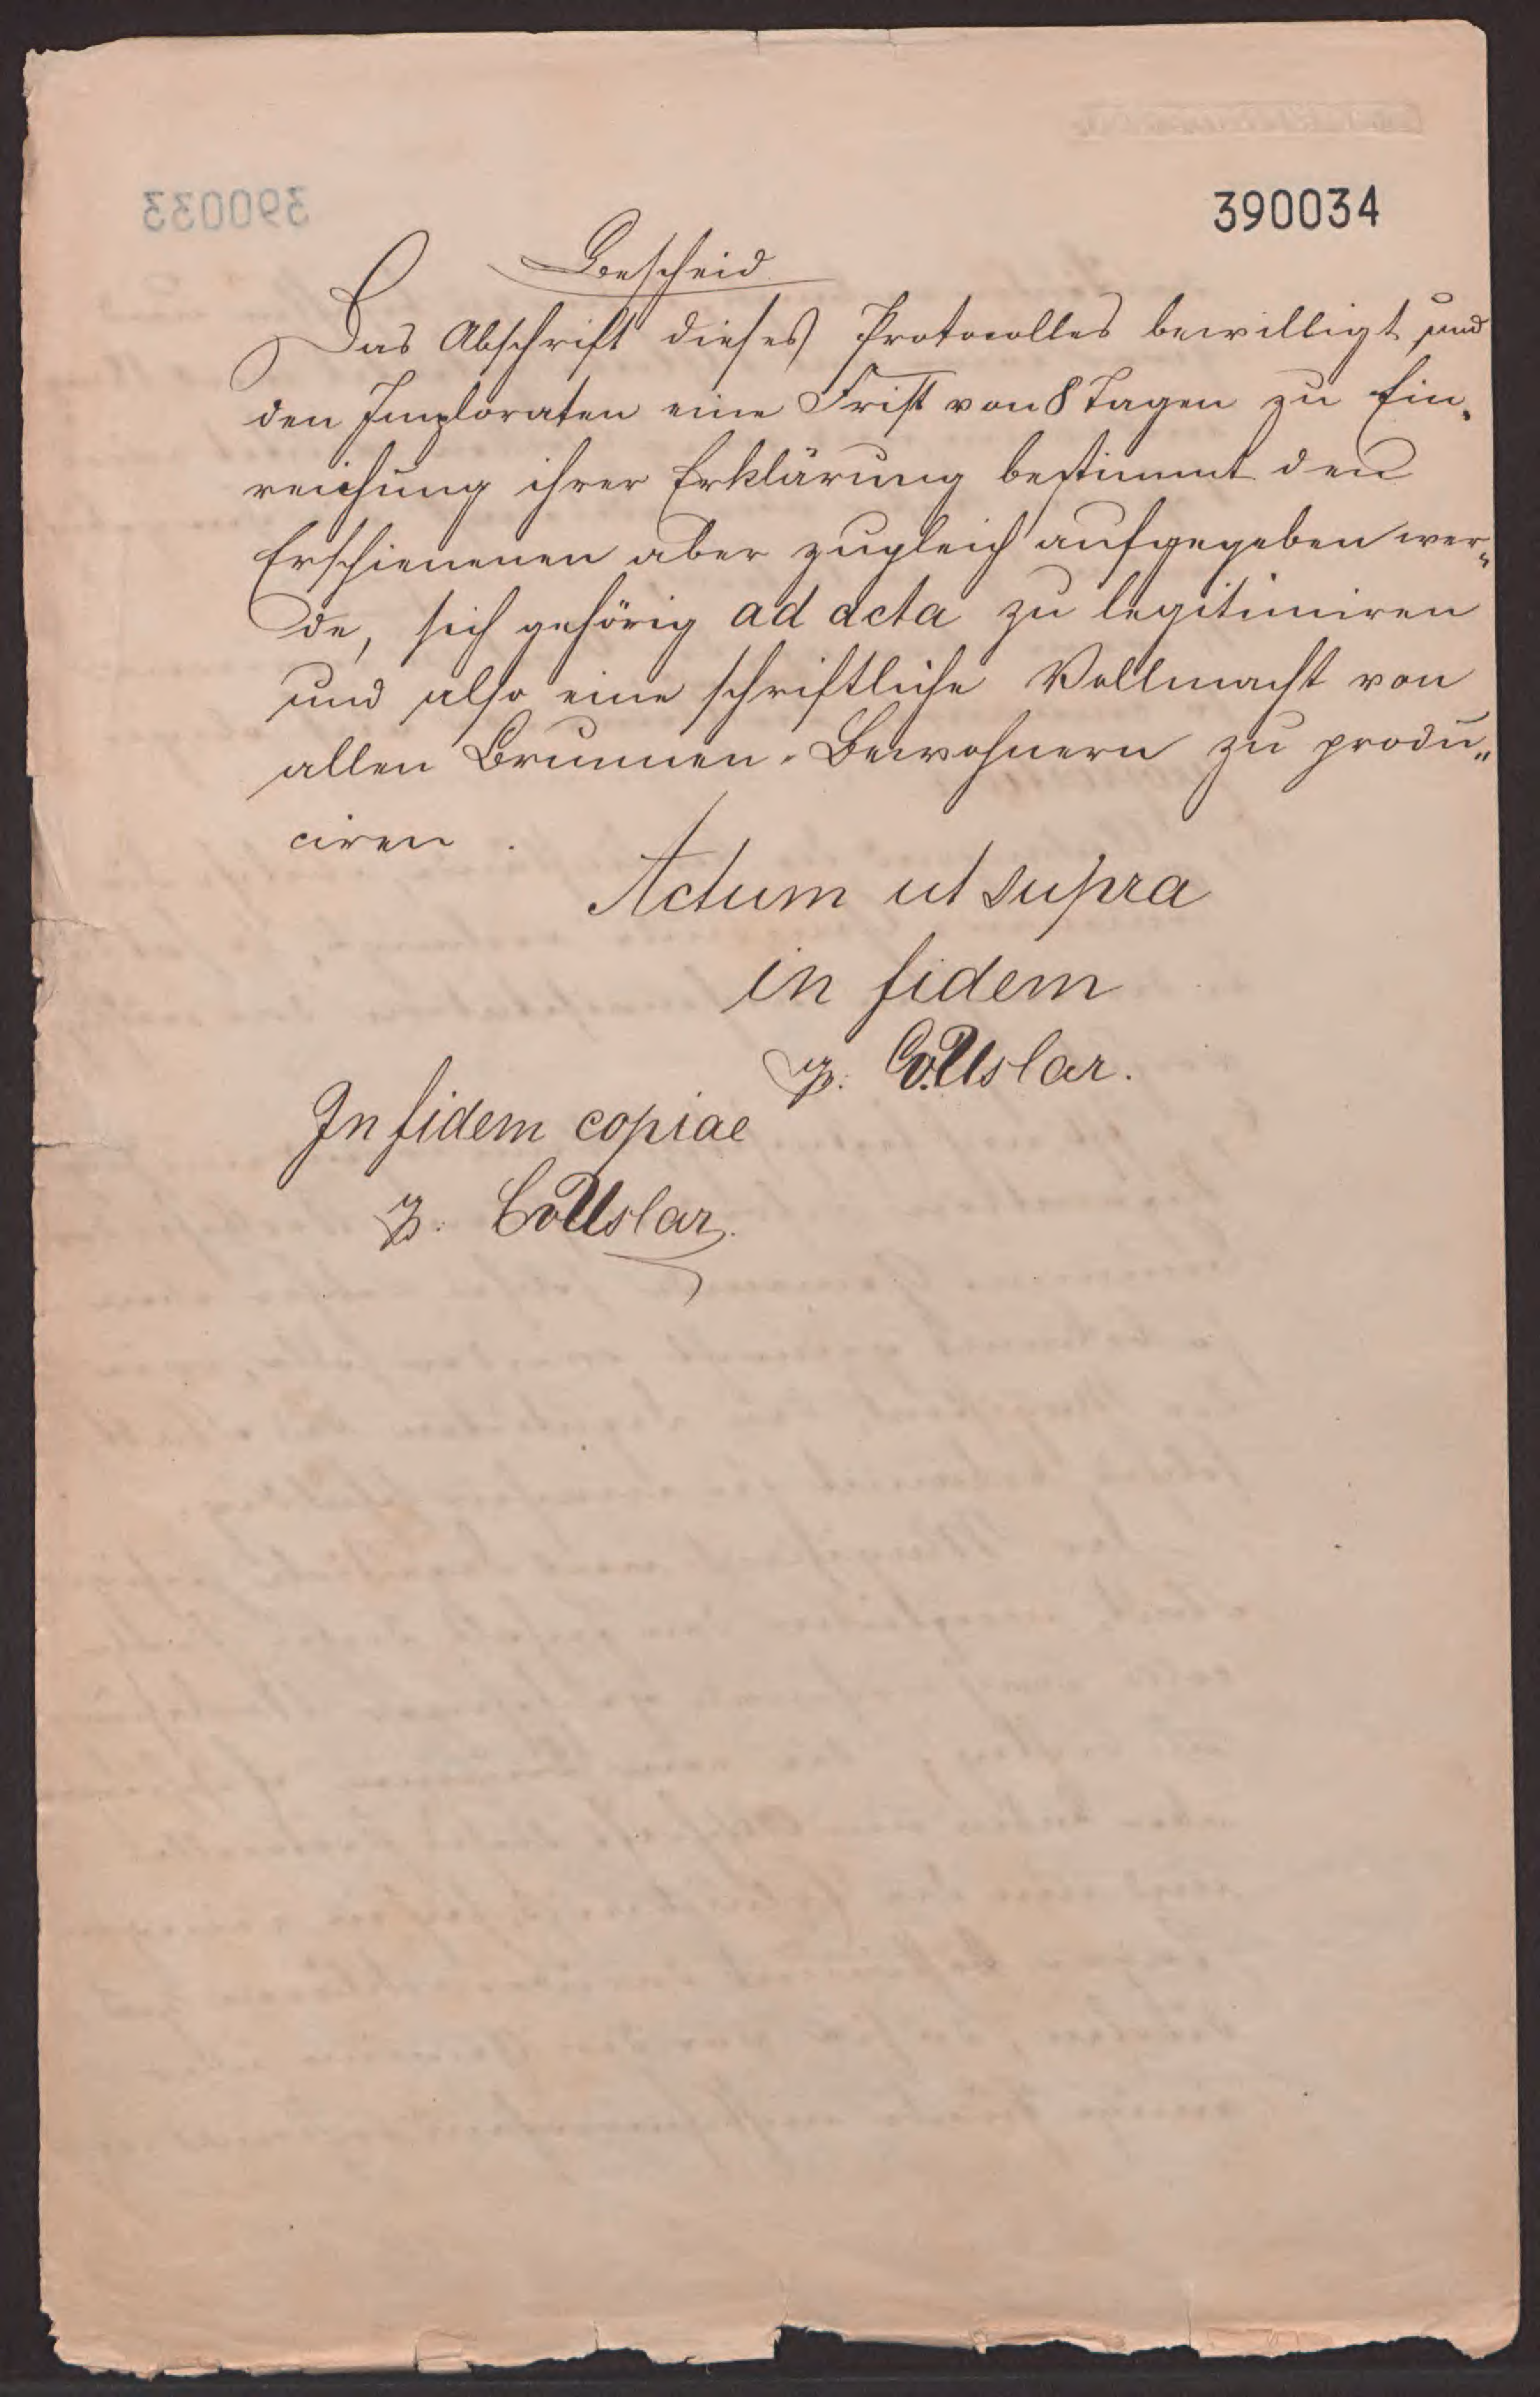 390034
Bescheid
Das Abschrift dieses Protocolles bewilligt und
den Imploraten eine Frist von 8 Tagen zu Ein-
reichung ihrer Erklärung bestimmt den
Erschienenen aber zugleich aufgegeben wer-
de, sich gehörig ad acta zu legitimiren
und also eine schriftliche Vollmacht von
allen Brunnen-Bewohnern zu produ-
ciren.
Actum ut supra
in fidem
CvUslar.
In fidem copiae
CvUslar.